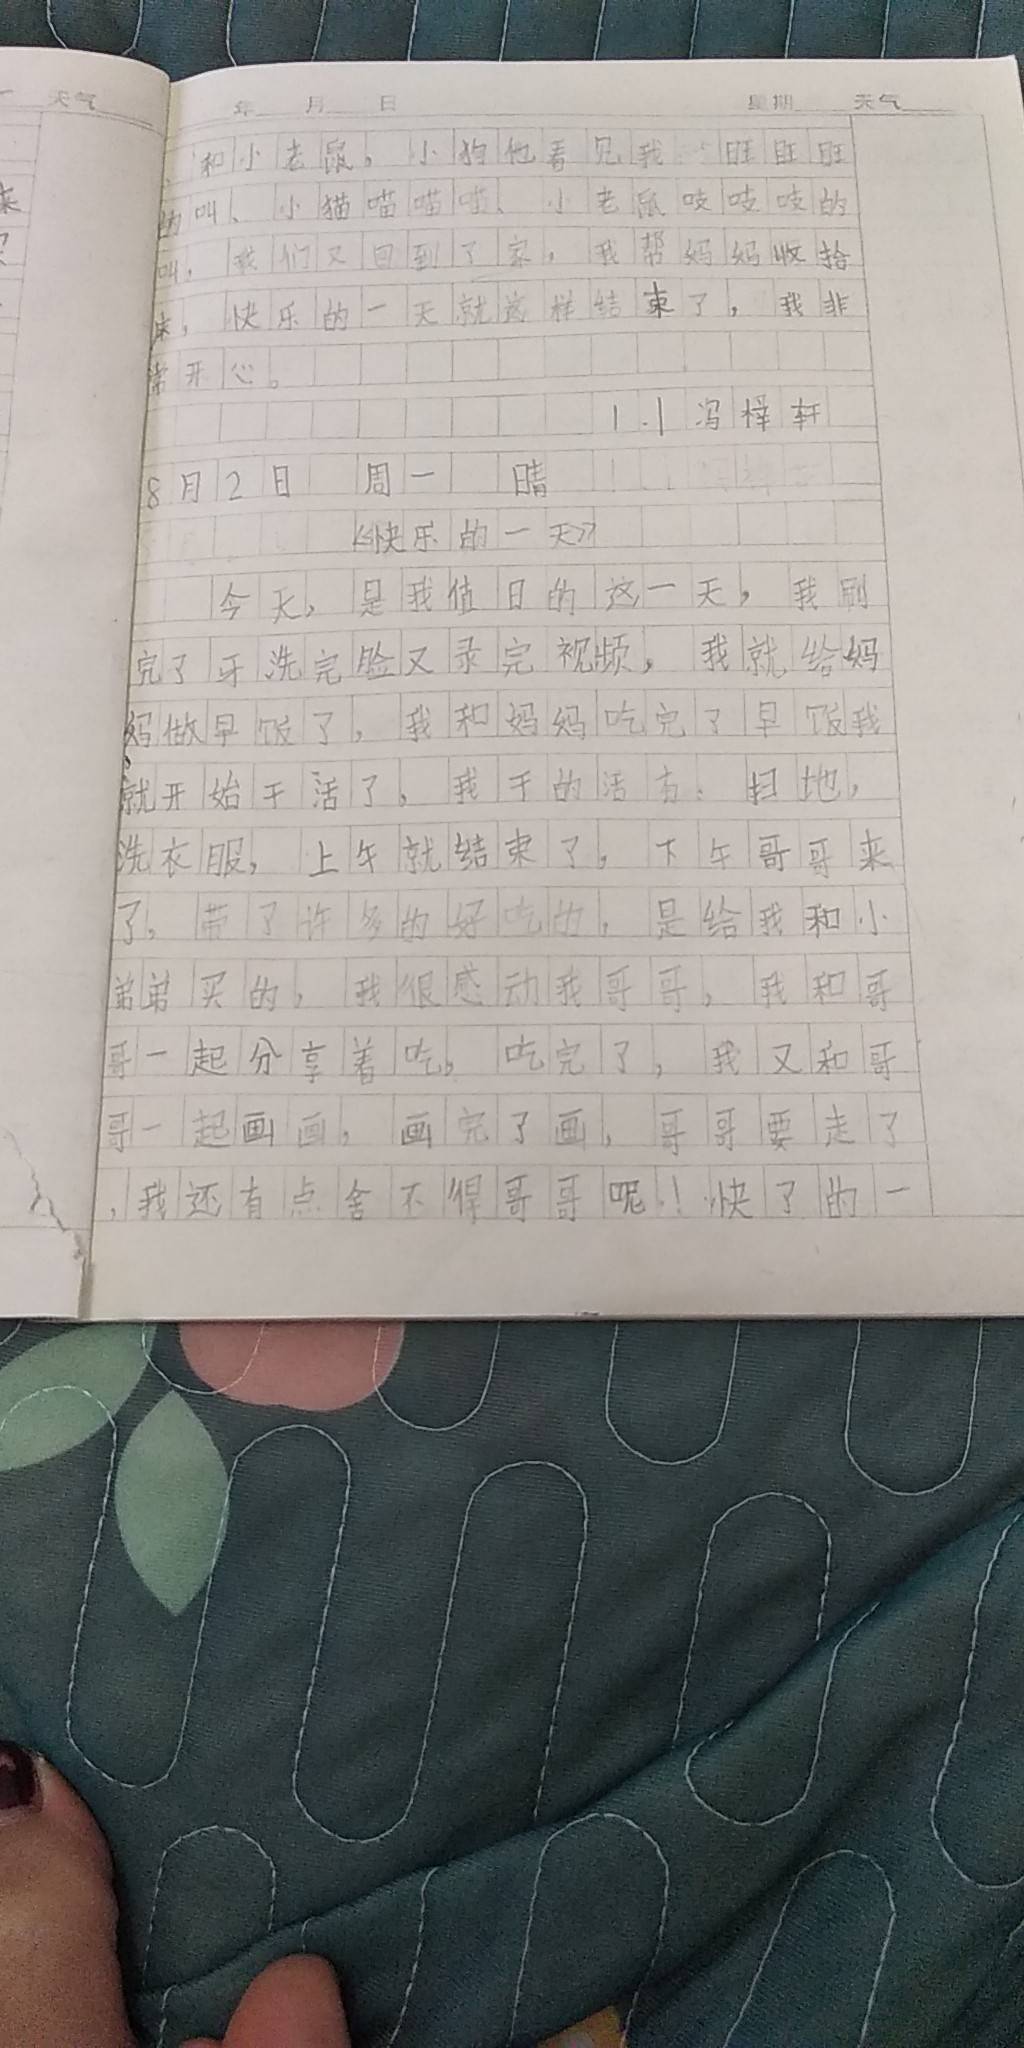 天气
年 月 日 星期 天气
来
、和小老鼠。小狗他看见我 旺旺旺
的叫、小猫喵喵喵、小老鼠吱吱吱的
叫，我们又回到了家，我帮妈妈收拾
床，快乐的一天就这样结束了，我非
常开心。
1.1 冯梓轩
8月2日 周一 晴
《快乐的一天》
今天，是我值日的这一天，我刷
完了牙洗完脸又录完视频，我就给妈
妈做早饭了，我和妈妈吃完了早饭我
就开始干活了。我干的活有：扫地，
洗衣服，上午就结束了，下午哥哥来
了。带了许多的好吃的，是给我和小
弟弟买的，我很感动我哥哥，我和哥
哥一起分享着吃。吃完了，我又和哥
哥一起画画，画完了画，哥哥要走了
，我还有点舍不得哥哥呢！快了的一